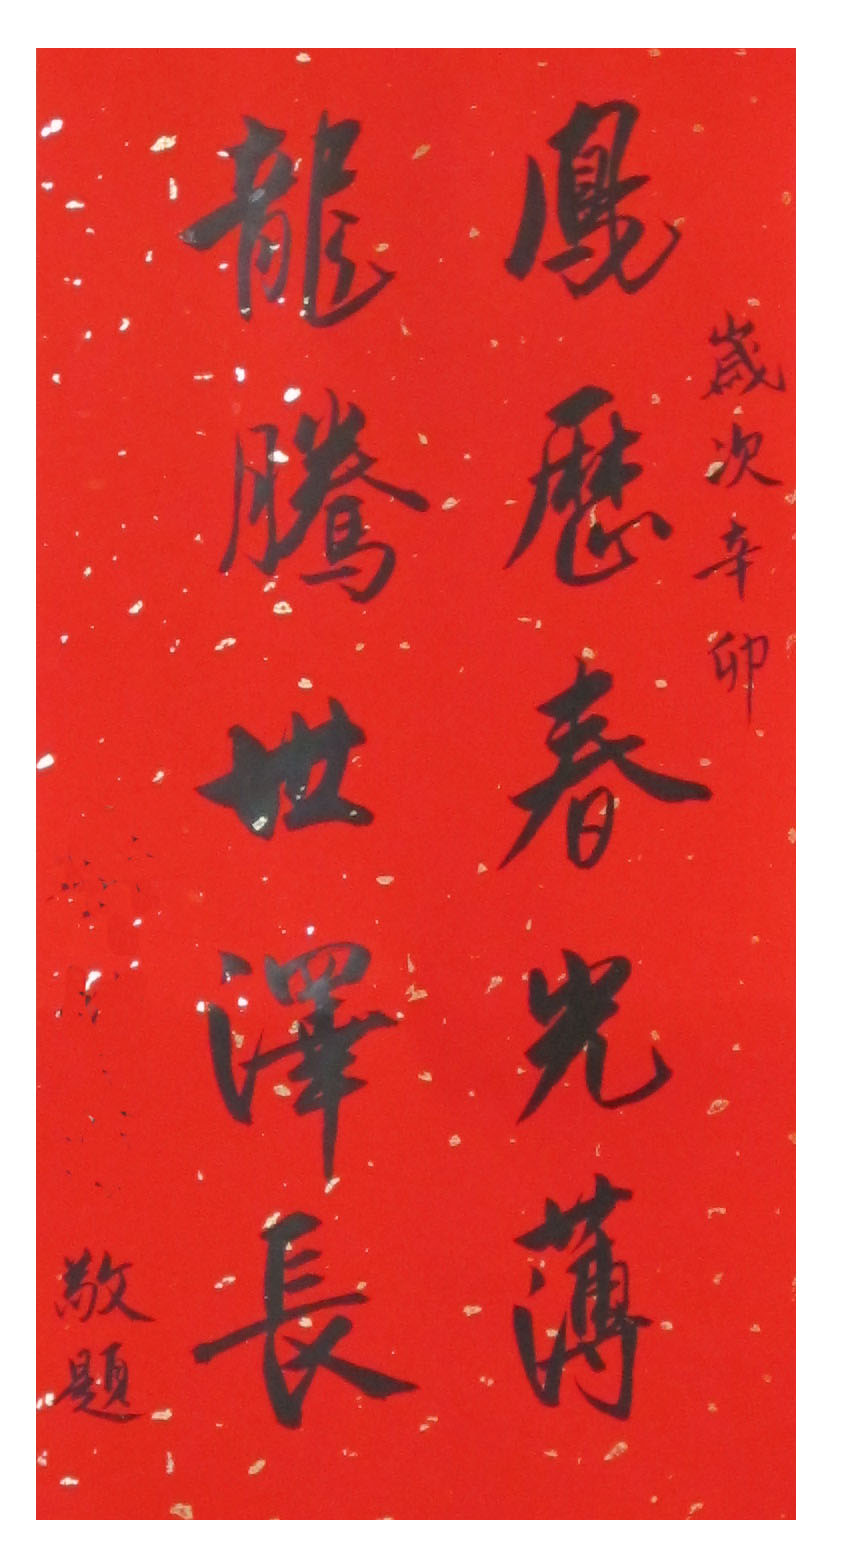 歲次辛卯
鳳曆春光薄
龍騰世澤長
敬題